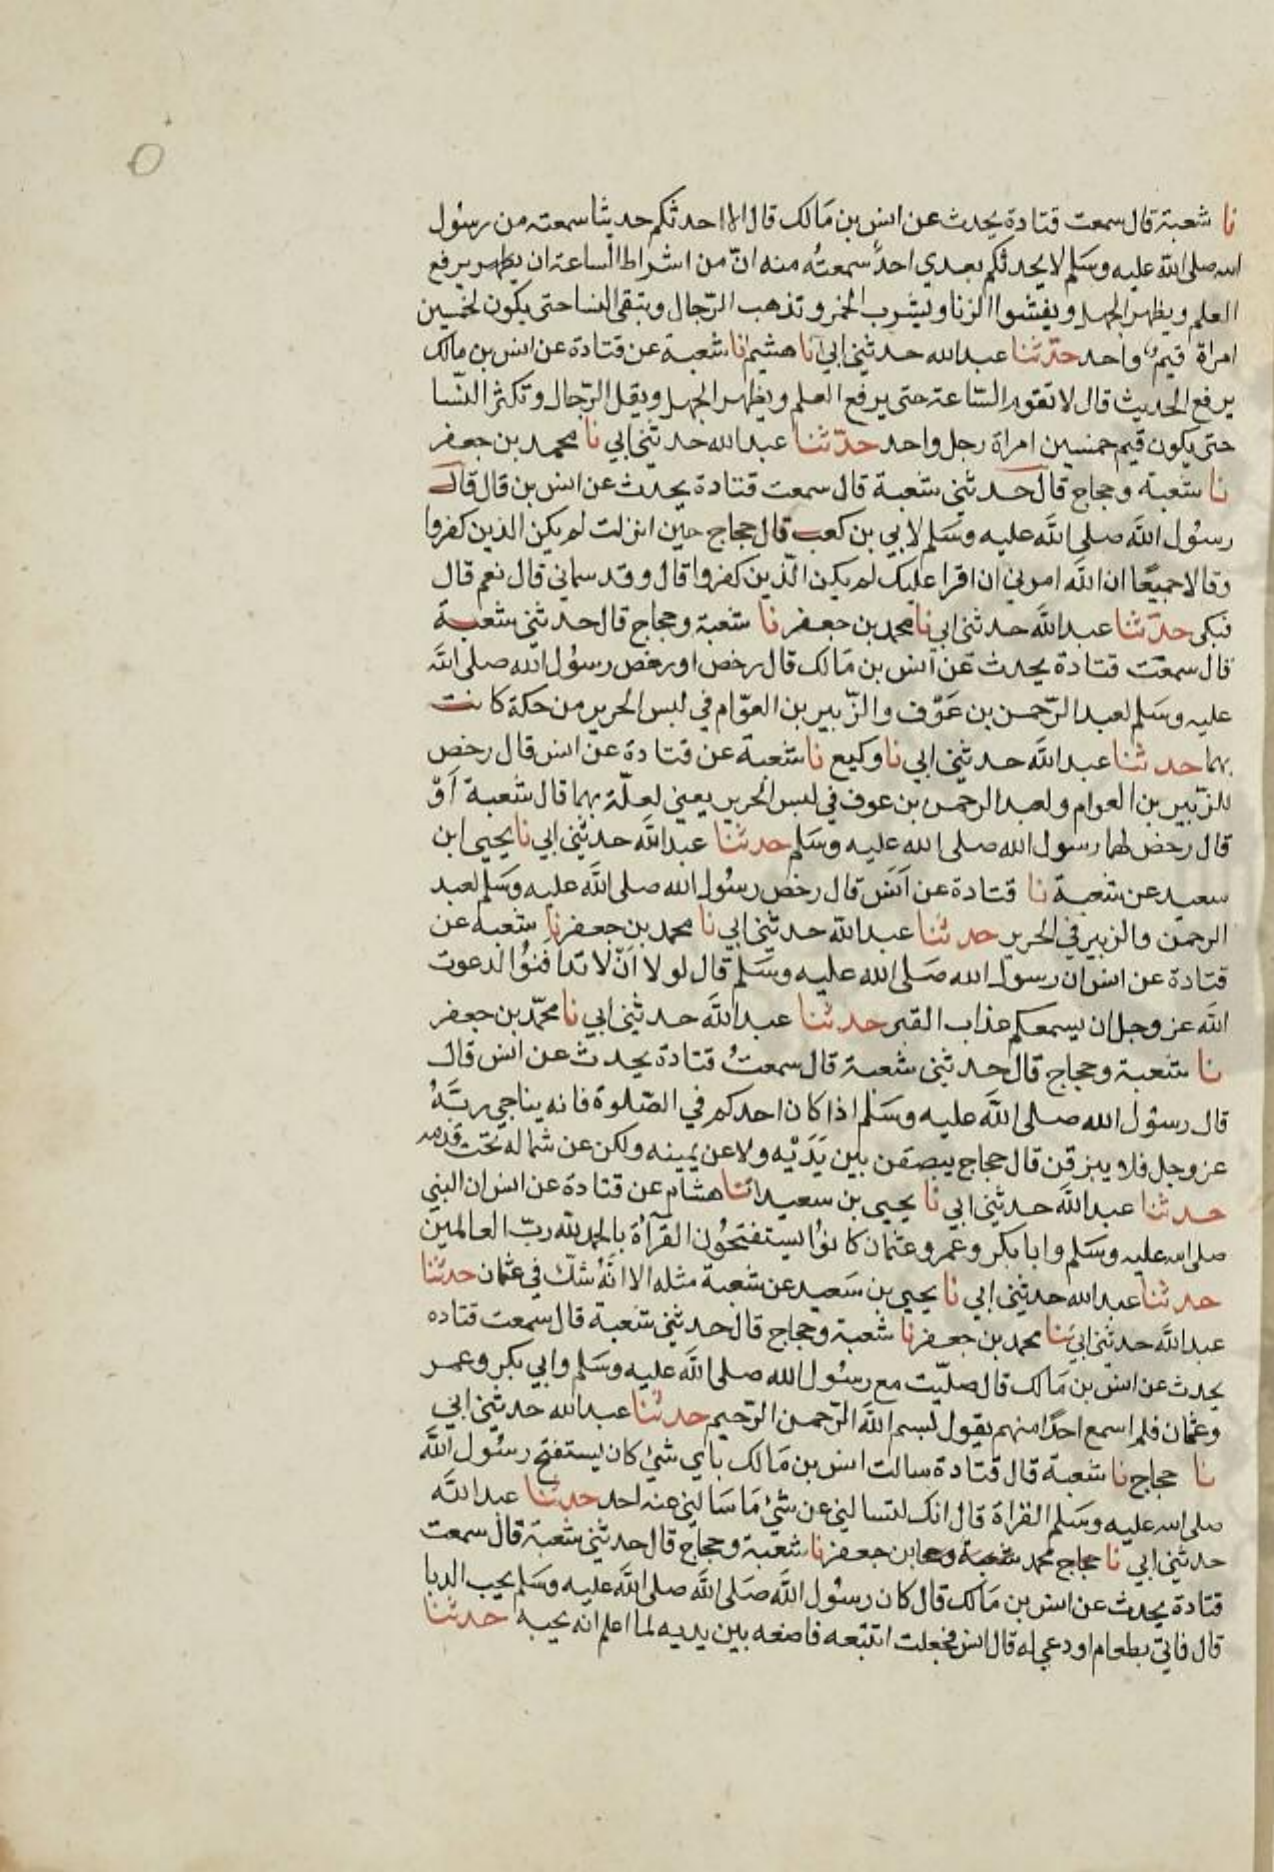 نا شعبة قال سمعت قتادة يحدث عن انس بن مالك قال الا احدثكم حديثا سمعته من رسول
الله صلى الله عليه وسلم لا يحدثكم بعدي احدٌ سمعتُه منه انّ من اشراط الساعة ان يظهر يرفع
العلم ويظهر الجهل ويفشوا الزنا ويشرب الخمر وتذهب الرّجال وتبقى النسا حتى يكون لخمسين
امراة قيم واحد حدّثنا عبد الله حدثني ابي انا هشيم انا شعبة عن قتادة عن انس بن مالك
يرفع الحديث قال لا تقوم السّاعة حتى يرفع العلم ويظهر الجهل ويقل الرّجال وتكثر النّسا
حتى يكون قيم خمسين امراة رجل واحد حدّثنا عبد الله حدثني ابي نا محمد بن جعفر
نا شعبة وحجاج قال حدثني شعبة قال سمعت قتادة يحدث عن انس بن قال قال
رسول الله صلى الله عليه وسلم لابي بن كعب قال حجاج حين انزلت لم يكن الذين كفروا
وقالا جميعًا ان الله امرني ان اقرا عليك لم يكن الّذين كفروا قال وقد سماني قال نعم قال
فبكى حدّثنا عبد الله حدثني ابي نا محمد بن جعفر نا شعبة وحجاج قال حدثني شعبة
قال سمعت قتادة يحدث عن انس بن مالك قال رخص او رخص رسول الله صلى الله
عليه وسلم لعبد الرّحمن بن عَوْف والزّبير بن العوّام في لبس الحرير من حكة كانت
بهما حدثنا عبد الله حدثني ابي نا وكيع نا شعبة عن قتادة عن انس قال رخص
للزّبير بن العوام ولعبد الرحمن بن عوف في لبس الحرير يعني لعلّة بهما قال شعبة اَوْ
قال رخص لهما رسول الله صلى الله عليه وسلم حدثنا عبد الله حدثني ابي نا يحيى ابن
سعيد عن شعبة نا قتادة عن اَنَس قال رخص رسول الله صلى الله عليه وسلم لعبد
الرحمن والزبير في الحرير حدثنا عبد الله حدثني ابي نا محمد بن جعفر نا شعبة عن
قتادة عن انس ان رسول الله صَلى الله عليه وسَلم قال لولا اَنْ لا تدافنُوا لدعوت
الله عز وجل ان يسمعكم عذاب القبر حدثنا عبد الله حدثني ابي نا محمّد بن جعفر
نا شعبة وحجاج قال حدثني شعبة قال سمعتُ قتادة يحدث عن انس قال
قال رسول الله صلى الله عليه وسَلم اذا كان احدكم في الصّلوة فانه يناجي ربَّهُ
عز وجل فلا يبزقن قال حجاج يبصقن بين يَدَيْه ولا عن يمينه ولكن عن شماله تحت قدمه
حدثنا عبد الله حدثني ابي نا يحيى بن سعيد انا هشام عن قتادة عن انس ان النبي
صلى الله عليه وسَلم وابا بكر وعُمر وعثمان كانوُا يستفتحوُن القرآةُ بالحمد لله ربّ العالمين
حدثنا عبد الله حدثني ابي نا يحيى بن سَعيد عن شعبة مثله الا انّهُ شكّ في عثمان حدثنا
عبد الله حدثني ابي ثنا محمد بن جعفر نا شعبة وحجاج قال حدثني شعبة قال سمعت قتاده
يحدث عن انس بن مَالك قال صلّيت مع رسول الله صلى الله عليه وسَلم وابي بكر وعمر
وعثمان فلم اسمع احدًا منهم يقول لبسم الله الرّحمن الرّحيم حدثنا عبد الله حدثني ابي
نا حجاج نا شعبة قال قتادة سالت انس بن مَالك باي شئ كان يستفتح رسول الله
صلى الله عليه وسَلم القراة قال انك لتسالني عن شئ مَا سَالني عنه احد حدثنا عبد الله
حدثني ابي نا حجاج محمد شعبة وحجا بن جعفر نا شعبة وحجاج قال حدثني شعبة قال سمعت
قتادة يحدث عن انس بن مَالك قال كان رسول الله صَلى الله صلى الله عليه وسَلم يحب الدبا
قال فاتي بطعام او دعي له قال انس فجعلت اتتبعه فاضعه بين يديه لما اعلم انه يحبه حدثنا